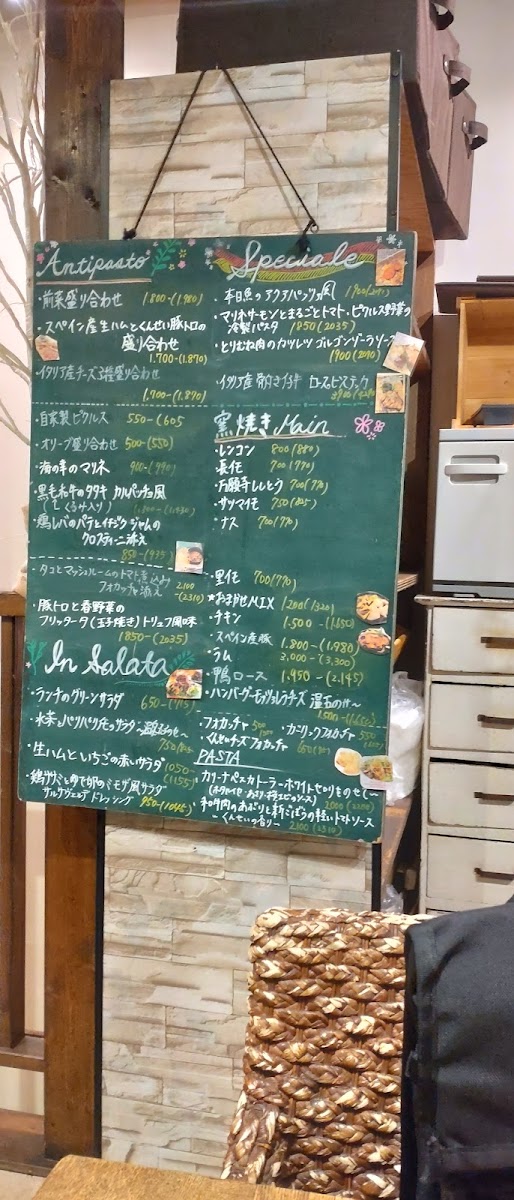 Antipasto
・前菜盛り合わせ 1.800-(1.980)
・スペイン産生ハムとくんせい豚トロの
盛り合わせ
1.700-(1.870)
・イタリア産チーズ3種盛り合わせ
1,700-(1,870)
・自家製ピクルス 550-(605
・オリーブ盛り合わせ 500-(550)
・海の幸のマリネ 900-(990)
・黒毛和牛のタタキ カルパッチョ風
・鶏レバのパテとイチジクジャムの
クロスティーニ添え
850-(935)
・タコとマッシュルームのトマト煮込み
フォカッチャ添え 2100
-(2310)
・豚トロと春野菜の
フリッタータ(玉子焼き)トリュフ風味
1850-(2035)
In Salata
・ランチのグリーンサラダ 650-(715)
・水菜のパリパリチーズサラダ
750(825
・生ハムといちごの赤いサラダ 1050-
(1155)
・鶏ササミとゆで卵のミモザ風サラダ
サルサヴェルデ ドレッシング 950-(1045)
Speciale
・本日魚のアクアパッツァ風 1900(2090)
・マリネサーモンとまるごとトマト・ピクルス野菜の
冷製パスタ 1850(2035)
・とりむね肉のカツレツ ゴルゴンゾーラソース
1900(2090)
・イタリア産骨付き仔牛 ロースビステッカ
窯焼き Main
・レンコン 800(880)
・長芋 700(770)
・万願寺ししとう 700(770)
・サツマイモ 750(825)
・ナス 700(770)
・里芋 700(770)
・おまかせMIX 1200(1320)
・チキン 1.500-(1.650)
・スペイン産豚 1.800-(1.980)
・ラム 3,000-(3,300)
・鴨ロース 1.950-(2.145)
・ハンバーグモッツァレラチーズ 温玉のせ〜
1500-(1650)
・フォカッチャ 500
・ガーリックフォカッチャ 550
・くんせいチーズフォカッチャ 650
PASTA
カリーナペスカトーラーホワイトせりものせ(〜
2000(2200)
和牛肉のあぶりと新ごぼうの軽いトマトソース
-くんせいの香り- 2100(2310)